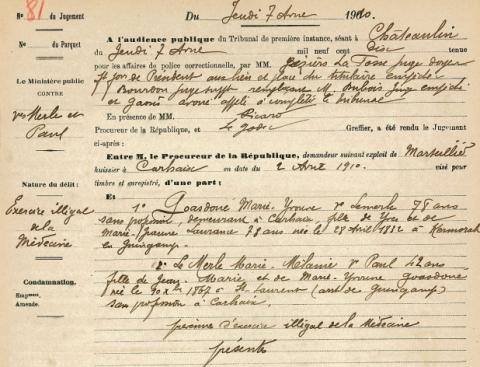 N° 81 du Jugement
Du Jeudi 7 Avril 1910.
N° du Parquet
A l'audience publique du Tribunal de première instance, séant à Chateaulin
du Jeudi 7 Avril mil neuf cent Dix tenue
pour les affaires de police correctionnelle, par MM. juge doyen
f^t fon de Président aux lieu et place du titulaire empêché
Bourdon juge supp^t remplaçant M. Dubois Juge empêché
et avoué appelé à compléter le tribunal
Le Ministère public
CONTRE
v^e Merle et
Paul
En présence de MM. Picard
Procureur de la République, et Le Greffier, a été rendu le Jugement
ci-après :
Entre M. le Procureur de la République, demandeur suivant exploit de
huissier à Carhaix en date du 2 Avril 1910. visé pour
timbre et enregistré, d'une part ;
Nature du délit :
Exercice illégal
de la
Médecine
Et 1° Goasdoué Marie-Yvonne v^e Lemerle 78 ans
sans profession, demeurant à Carhaix, fille de Yves et de
Marie-Jeanne 78 ans née le 28 Avril 1832 à
en Guingamp.
2° Le Merle Marie-Mélanie v^e Paul 42 ans
fille de Jean-Marie et de Marie-Yvonne Goasdoué
née le 1867 à St Laurent (arr^t de Guingamp)
sans profession à Carhaix
Condamnation.
Emp^nt
Amende.
prévenues d'exercice illégal de la Médecine
présentes